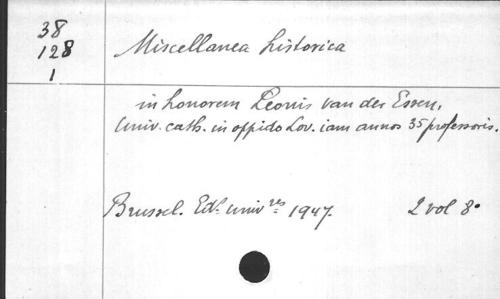 38
128
1
Miscellanea historica
in honorem Leonis van der Essen,
Univ. cath. in oppido Lov. iam annos 35 professoris.
Brussel. Ed.s univ.res 1947. 2 vol 8°